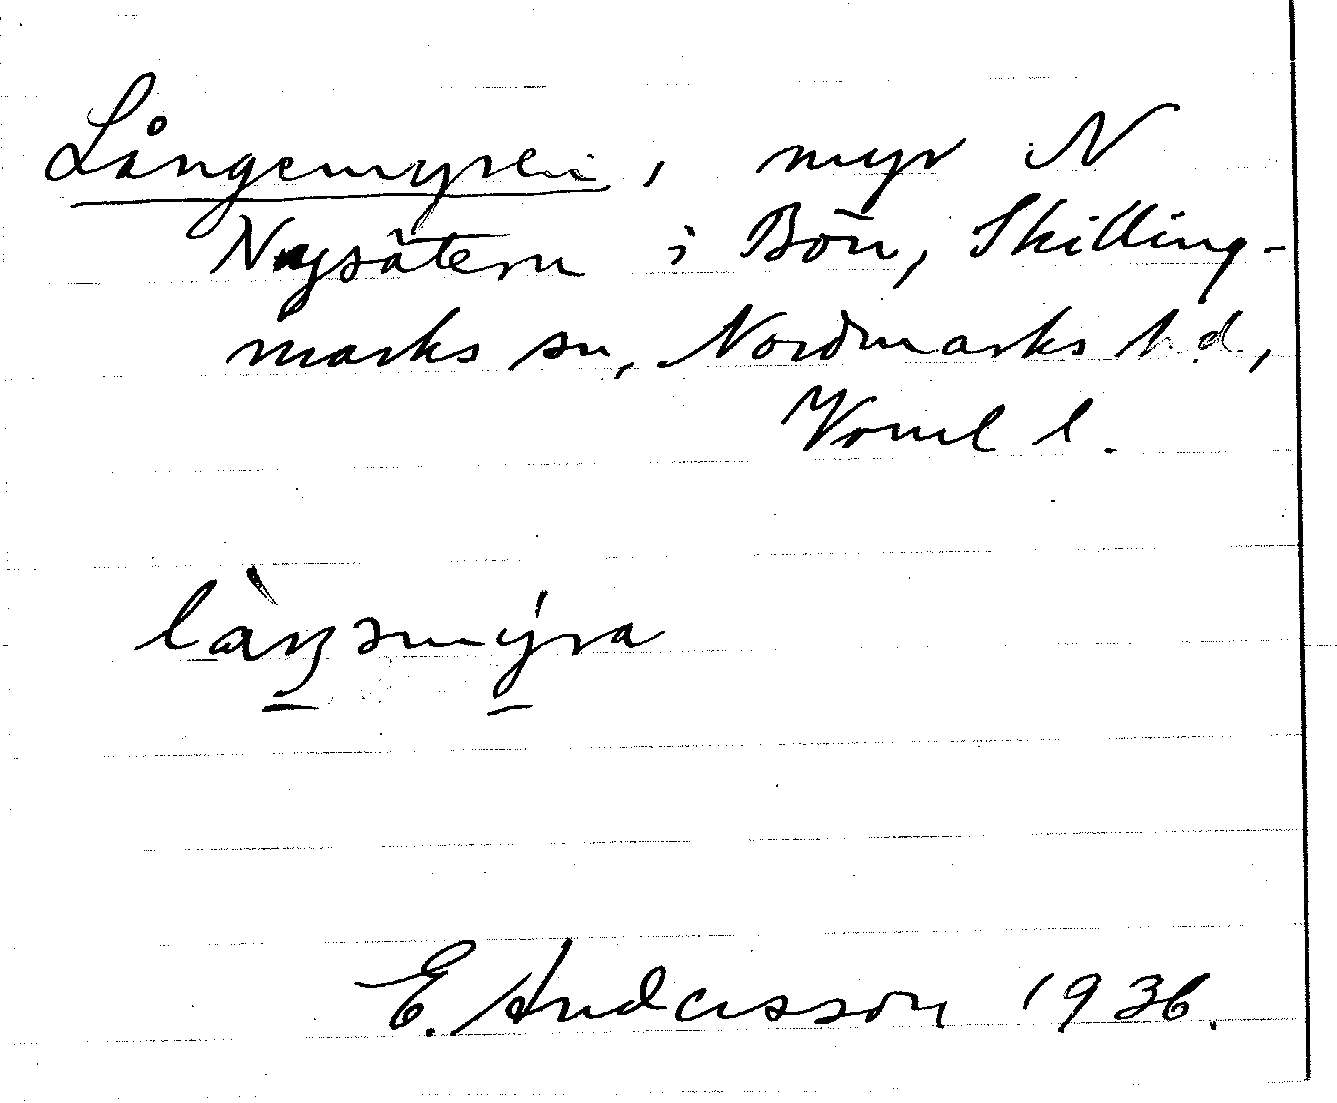 Långemyren, myr N
Nysätern i Bön, Skilling-
marks sn, Nordmarks hd,
Värml l.
làŋəmýra
E. Andersson 1936.